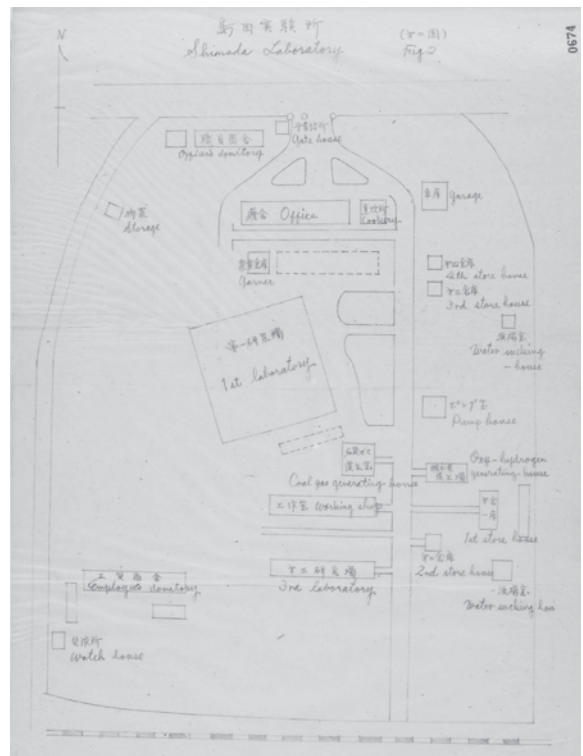 島田実験所 (第二図)
Shimada Laboratory Fig 2
0674
N
職員宿舎
Officer's domitory
守衛詰所
Gate house
物置
Storage
庁舎 Office
Cookery
車庫
Garage
倉庫
Garner
第四倉庫
4th store house
第三倉庫
3rd store house
Water sucking
-house
第一研究場
1st laboratory
ポンプ室
Pump house
Coal gas generating-house
Oxy-hydrogen
generating-house
工作室 Working shop
1st store house
第二倉庫
2nd store house
第三研究場
3rd laboratory
Water sucking hou
工員宿舎
Employee domitory
見張所
Watch house